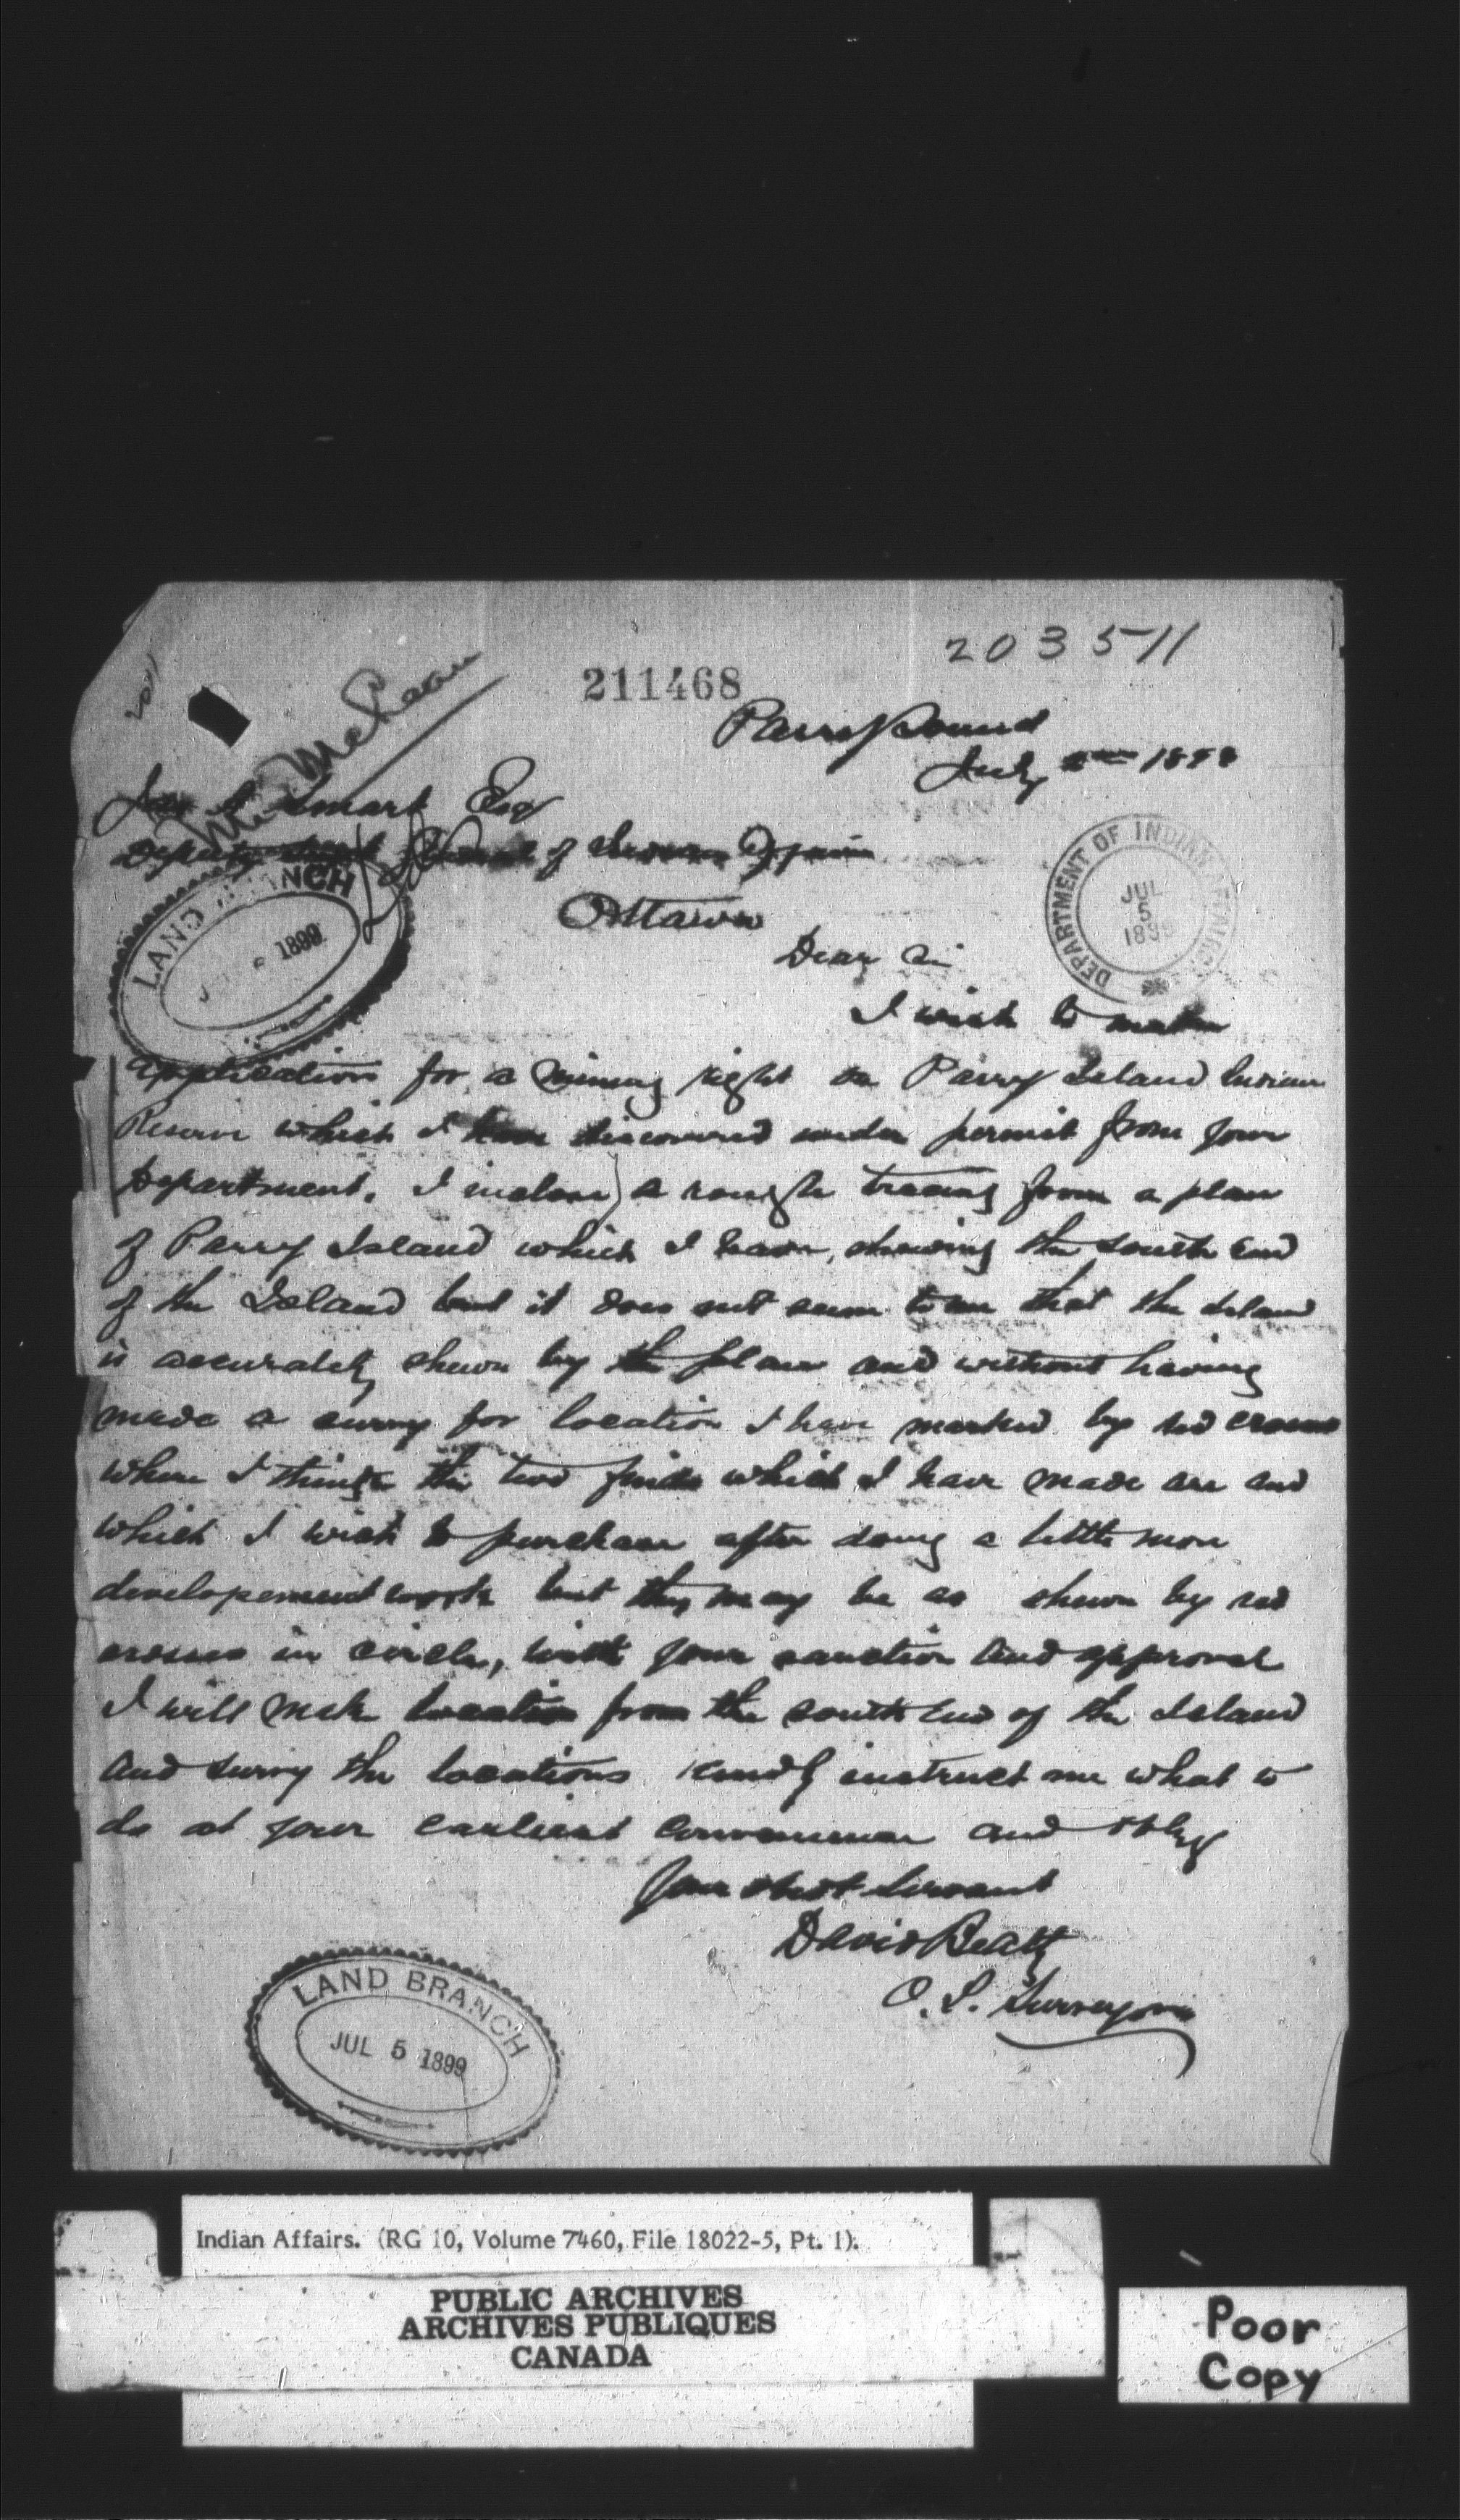 203511
211468
Parry Sound
July 1899
Mr McLean
Jas A Smart Esq
Deputy General of Indian Affairs
Ottawa
LAND BRANCH
1899
DEPARTMENT OF INDIAN AFFAIRS
JUL
5
189
Dear Sir
I wish to make
application for a mining right on Parry Island Indian
Reserve which I have discovered under permit from your
Department. I inclose a rough tracing from a plan
of Parry Island which I have, showing the South End
of the Island but it does not seem to me that the Island
is accurately shewn by the plan and without having
made a survey for location I have marked by red crosses
where I think the two finds which I have made are and
which I wish to purchase after doing a little more
developement work but they may be as shewn by red
crosses in circle, with your sanction and approval
I will make location from the South End of the Island
and survey the locations kindly instruct me what to
do at your earliest convenience and oblige
Your obdt Servant
David Beatty
O. L. Surveyor
LAND BRANCH
JUL 5 1899
Indian Affairs. (RG 10, Volume 7460, File 18022-5, Pt. 1).
PUBLIC ARCHIVES
ARCHIVES PUBLIQUES
CANADA
Poor
Copy